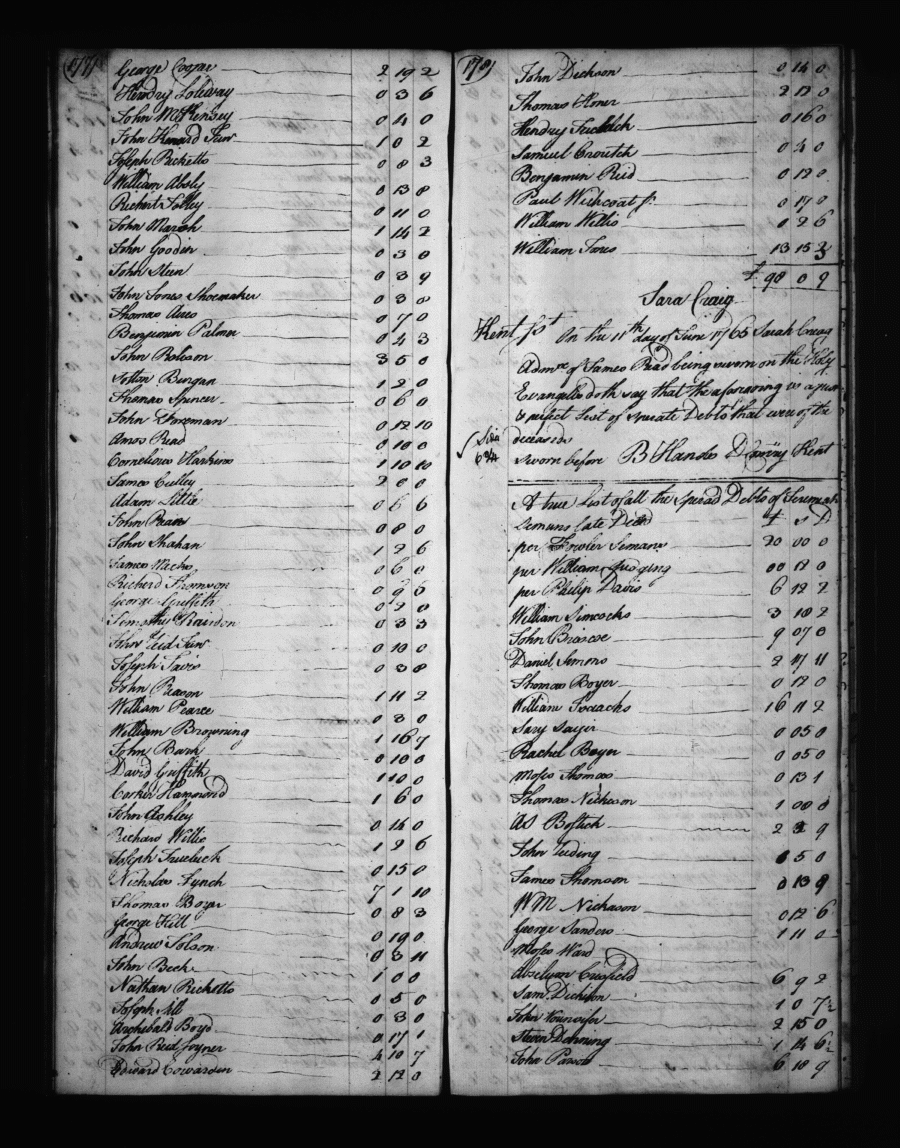 177
George Cooper 2 19 2
Hendry Loleway 0 3 6
John McKensey 0 4 0
John Junr 1 0 2
Joseph Ricketts 0 8 3
William Absly 0 13 8
Richert Jolley 0 11 0
John Marsh 1 14 2
John Goodin 0 3 0
John Steen 0 3 9
John Jones Shoemaker 0 3 8
Thomas Aires 0 7 0
Benjimin Palmer 0 4 3
John Robison 3 5 0
Bingan 1 2 0
Thomas Spencer 0 6 0
John Foreman 0 12 10
Amos Read 0 10 0
Cornelious Harkins 1 10 10
James Culley 2 0 0
Adam Little 0 6 6
John 0 8 0
John Shahan 1 2 6
James 0 6 0
Richerd Thomson 0 9 6
George Griffith 0 2 0
Timothy 0 3 3
John Junr 0 10 0
Joseph 0 3 8
John Reason 1 11 2
William Pearce 0 3 0
William Browning 1 16 7
John 0 10 0
David Griffith 1 10 0
Corker Hammond 1 6 0
John Ashley 0 14 0
Richard Willis 1 2 6
Joseph 0 15 0
Nicholas Lynch 7 1 10
Thomas Boyer 0 8 3
George Hill 0 19 0
Andrew Tolson 0 3 11
John Beck 1 0 0
Nathan Ricketts 0 5 0
Joseph Sill 0 3 0
Archebald Boyd 0 17 1
John Reed Joyner 4 10 7
Edward Cowarden 2 12 0
178
John Dickson 0 14 0
Thomas 2 12 0
Hendry 0 16 0
Samuel Croutch 0 4 0
Benjamin Reid 0 12 0
Paul Whichcoat Jr 0 17 0
William Willis 0 2 6
William 13 15 3
£ 98 0 9
Sara Craig
Kent Sst On the 11th day of June 1765 Sarah Creag
Admrx of James Read being sworn on the Holy
Evangels doth say that the aforegoing is a just
& perfect List of Sperate Debts that were of the
deceaseds
Sworn before B Hands D Comry Kent
A true List of all the Sperad Debts of Jeremiah
Semans late Decd £ s D
per Fowler Semans 20 00 0
per William Judging 00 12 0
per Philip Davis 6 12 2
William Simcocks 3 10 2
John Briscoe 9 07 0
Daniel Semons 2 17 11
Thomas Boyer 0 12 0
William 16 11 2
Sary 0 05 0
Rachel Boyer 0 05 0
Moses Thomas 0 13 1
Thomas Nickeson 1 00 0
As Bostick 2 9
John 5 0
James Thomson 0 13 9
Wm Nickason 0 12 6
George Sanders 1 11 0
Moses Ward
Abselum Crosfield 6 9 2
Sam Dickison 1 0 7½
John 2 15 0
Steven 1 14 6½
John 6 18 9